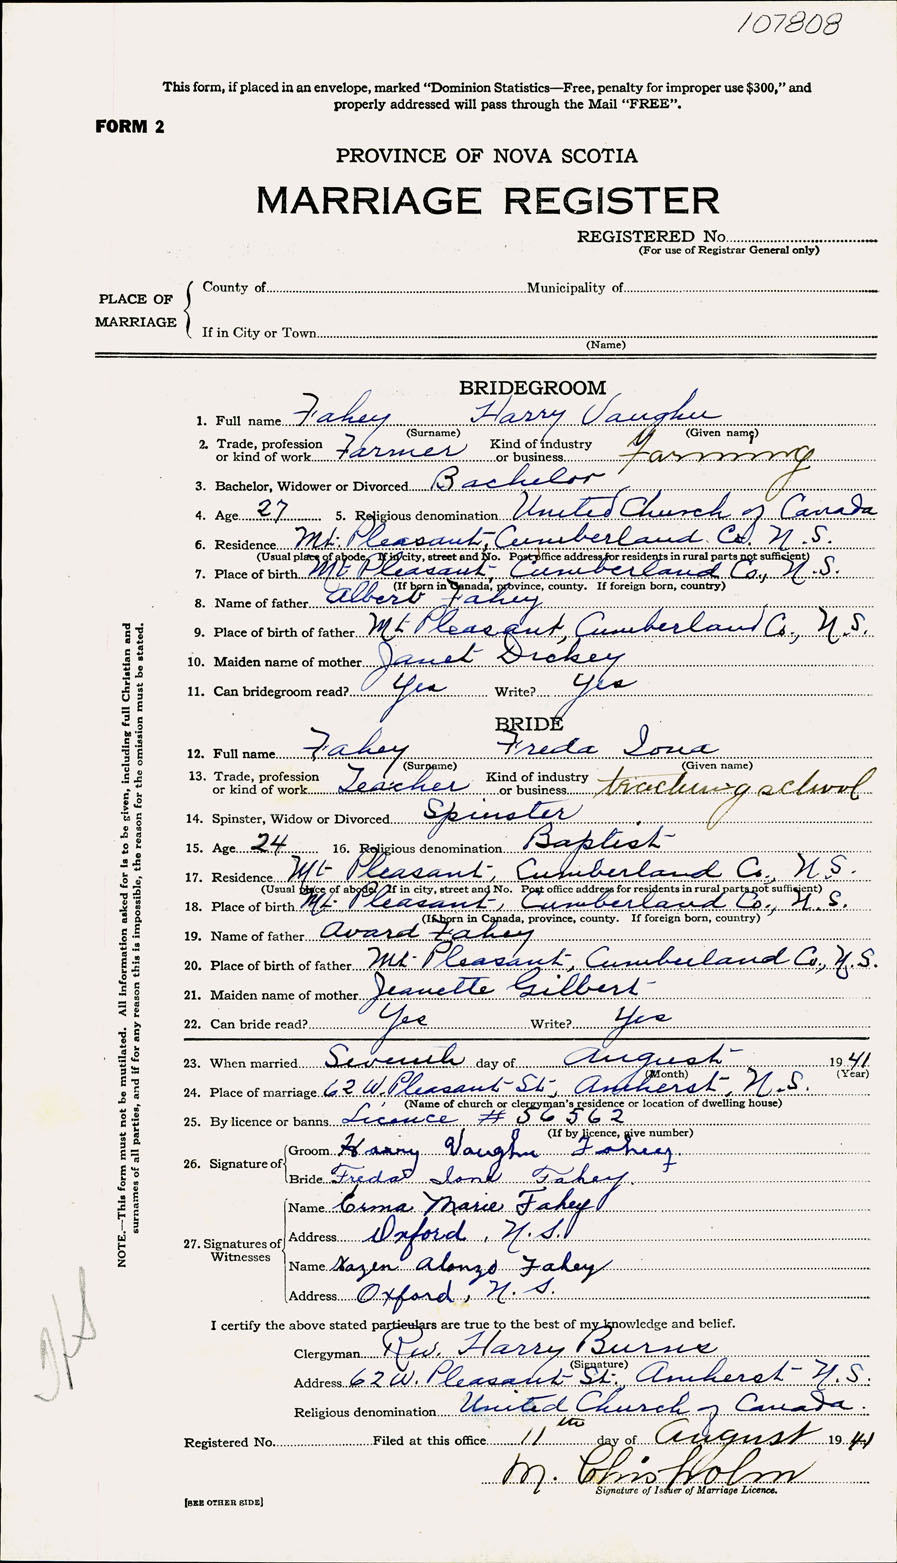 107808
This form, if placed in an envelope, marked "Dominion Statistics—Free, penalty for improper use $300," and
properly addressed will pass through the Mail "FREE".
FORM 2
PROVINCE OF NOVA SCOTIA
MARRIAGE REGISTER
REGISTERED No.
(For use of Registrar General only)
PLACE OF MARRIAGE
County of Municipality of
If in City or Town
(Name)
BRIDEGROOM
1. Full name Fahey Harry Vaughn
(Surname) (Given name)
2. Trade, profession or kind of work Farmer Kind of industry or business Farming
3. Bachelor, Widower or Divorced Bachelor
4. Age 27 5. Religious denomination United Church of Canada
6. Residence Mt. Pleasant, Cumberland Co. N.S.
(Usual place of abode. If in city, street and No. Post office address for residents in rural parts not sufficient)
7. Place of birth Mt Pleasant, Cumberland Co., N.S.
(If born in Canada, province, county. If foreign born, country)
8. Name of father Albert Fahey
9. Place of birth of father Mt Pleasant, Cumberland Co., N.S.
10. Maiden name of mother Janet Dickey
11. Can bridegroom read? Yes Write? Yes
BRIDE
12. Full name Fahey Freda Iona
(Surname) (Given name)
13. Trade, profession or kind of work Teacher Kind of industry or business teaching school
14. Spinster, Widow or Divorced Spinster
15. Age 24 16. Religious denomination Baptist
17. Residence Mt Pleasant, Cumberland Co., N.S.
(Usual place of abode. If in city, street and No. Post office address for residents in rural parts not sufficient)
18. Place of birth Mt. Pleasant, Cumberland Co., N.S.
(If born in Canada, province, county. If foreign born, country)
19. Name of father Avard Fahey
20. Place of birth of father Mt Pleasant, Cumberland Co., N.S.
21. Maiden name of mother Jeanette Gilbert
22. Can bride read? Yes Write? Yes
23. When married Seventh day of August 1941
(Month) (Year)
24. Place of marriage 62 W. Pleasant St., Amherst, N.S.
(Name of church or clergyman's residence or location of dwelling house)
25. By licence or banns Licence # 56562
(If by licence, give number)
26. Signature of
Groom Harry Vaughn Fahey
Bride Freda Iona Fahey
27. Signatures of Witnesses
Name Erma Marie Fahey
Address Oxford, N.S.
Name Hazen Alonzo Fahey
Address Oxford, N.S.
I certify the above stated particulars are true to the best of my knowledge and belief.
Clergyman Rev. Harry Burns
(Signature)
Address 62 W. Pleasant St., Amherst N.S.
Religious denomination United Church of Canada.
Registered No. Filed at this office 11th day of August 1941
M. Chisholm
Signature of Issuer of Marriage Licence.
[SEE OTHER SIDE]
NOTE.—This form must not be mutilated. All information asked for is to be given, including full Christian and
surnames of all parties, and if for any reason this is impossible, the reason for the omission must be stated.